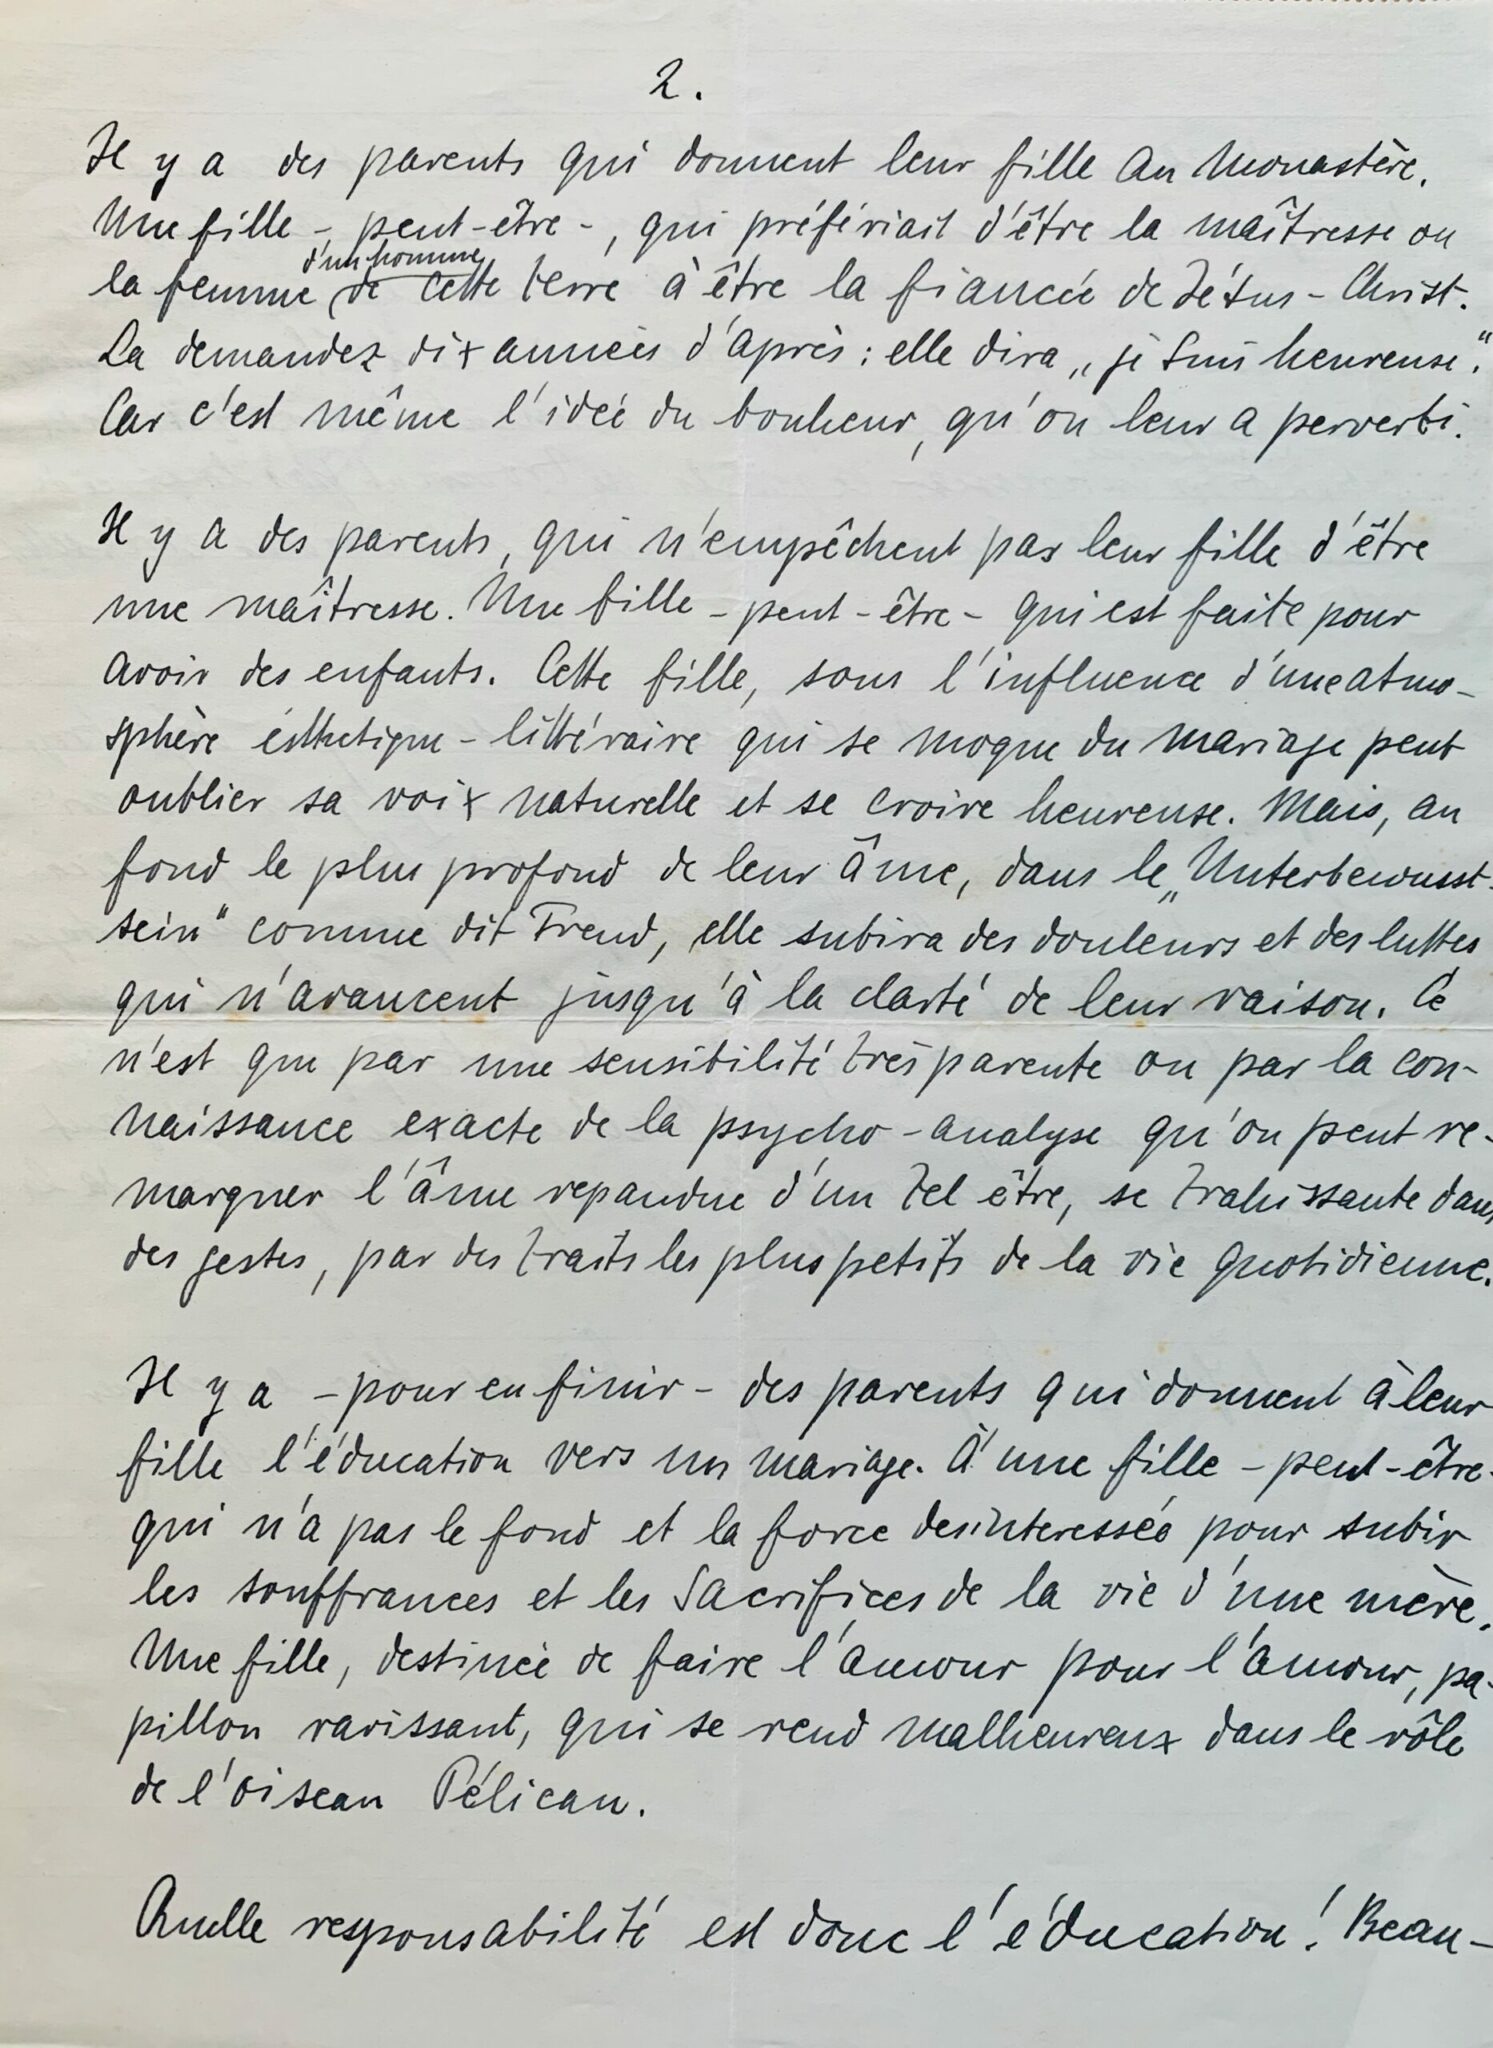 2.
Il y a des parents qui donnent leur fille au Monastère.
Une fille - peut-être -, qui préfériait d'être la maîtresse ou
d'un homme
la femme de cette terre à être la fiancée de Jésus-Christ.
La demandez dix années d'après: elle dira „je suis heureuse".
Car c'est même l'idée du bonheur, qu'on leur a perverti.
Il y a des parents, qui n'empêchent pas leur fille d'être
une maîtresse. Une fille - peut-être - qui est faite pour
avoir des enfants. Cette fille, sous l'influence d'une atmo-
sphère ésthetique-littéraire qui se moque du mariage peut
oublier sa voix naturelle et se croire heureuse. Mais, au
fond le plus profond de leur âme, dans le „Unterbewusst-
sein" comme dit Freud, elle subira des douleurs et des luttes
qui n'avancent jusqu'à la clarté de leur raison. Ce
n'est que par une sensibilité très parente ou par la con-
naissance exacte de la psycho-analyse qu'on peut re-
marquer l'âme repandue d'un tel être, se trahissante dans
des gestes, par des traits les plus petits de la vie quotidienne.
Il y a - pour en finir - des parents qui donnent à leur
fille l'éducation vers un mariage. À une fille - peut-être -
qui n'a pas le fond et la force desinteressée pour subir
les souffrances et les sacrifices de la vie d'une mère.
Une fille, destinée de faire l'amour pour l'amour, pa-
pillon ravissant, qui se rend malheureux dans le rôle
de l'oiseau Pélican.
Quelle responsabilité est donc l'éducation! Beau-